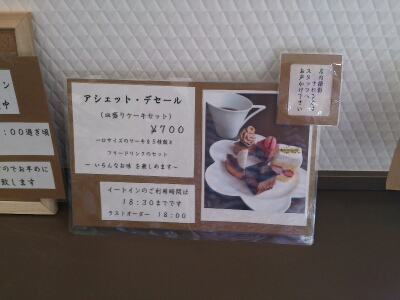 アシェット・デセール
(皿盛りケーキセット)
¥700
一口サイズのケーキ5種類と
フリードリンクのセット
～ いろんなお味 を楽しめます～
イートインのご利用時間は
18:30までです
ラストオーダー 18:00
店内撮影
スタッフへ
お声かけ下さい
:00過ぎ頃
のでお早めに
致します